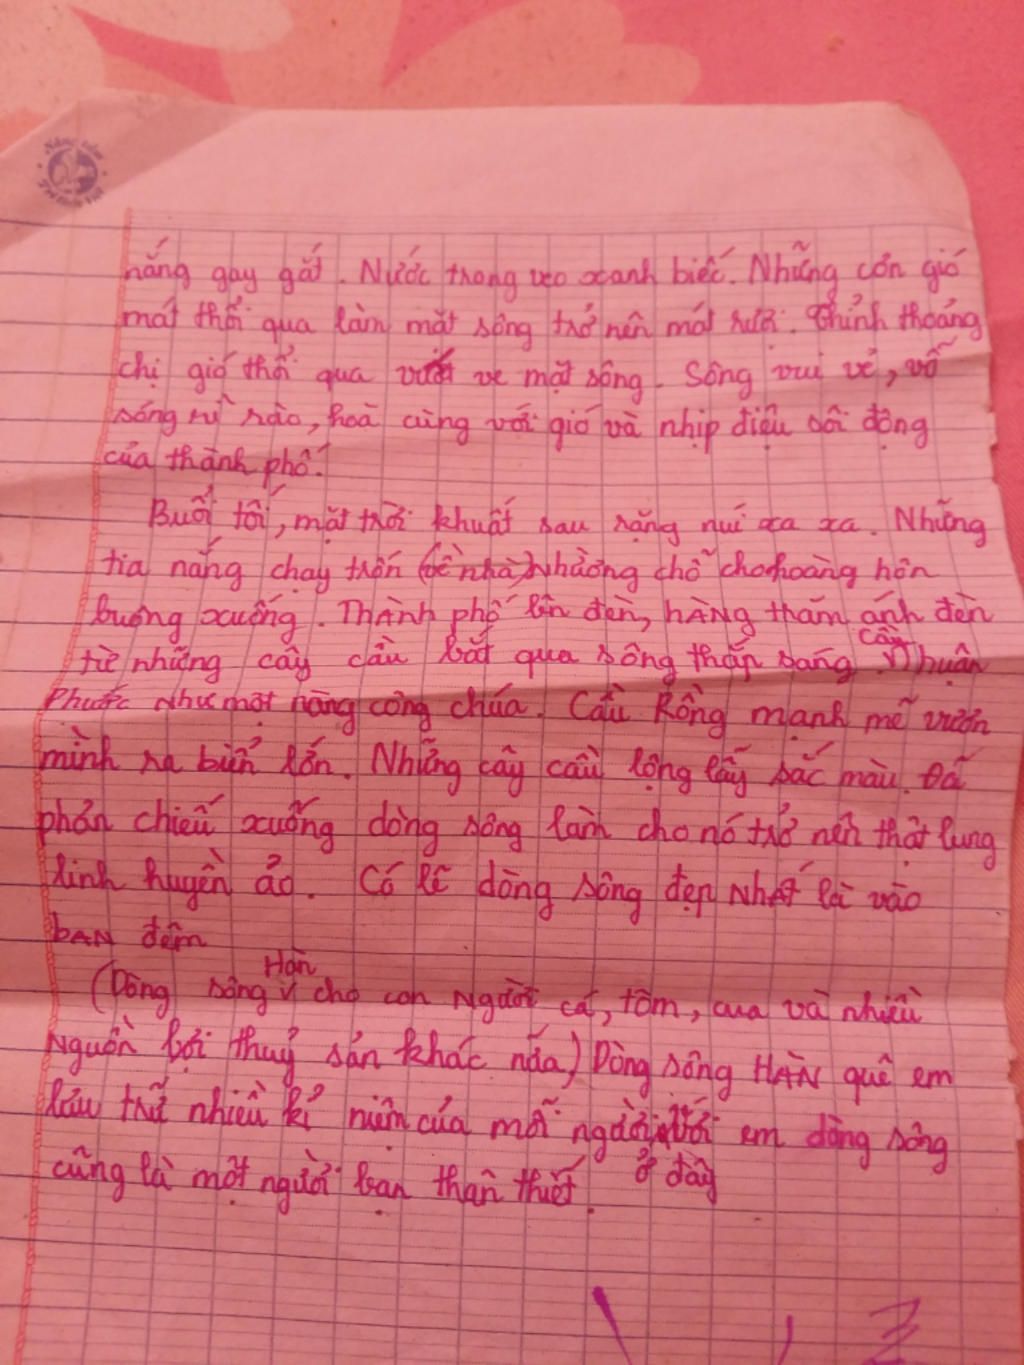 nắng gay gắt. Nước trong veo xanh biếc. Những cơn gió
mát thổi qua làm mặt sông trở nên mát rượi. Thỉnh thoảng
chị gió thổi qua vuốt ve mặt sông. Sông vui vẻ, vỗ
sóng rì rào, hoà cùng với gió và nhịp điệu sôi động
của thành phố.
Buổi tối, mặt trời khuất sau rặng núi xa xa. Những
tia nắng chạy trốn (về nhà) nhường chỗ cho hoàng hôn
buông xuống. Thành phố lên đèn, hàng thăm ánh đèn
từ những cây cầu bắt qua sông thắp sáng. cầu Thuận
Phước như một nàng công chúa. Cầu Rồng mạnh mẽ vươn
mình ra biển lớn. Những cây cầu lộng lẫy sắc màu. Đã
phản chiếu xuống dòng sông làm cho nó trở nên thật lung
linh huyền ảo. Có lẽ dòng sông đẹp nhất là vào
ban đêm
(Dòng sông Hàn cho con người cá, tôm, cua và nhiều
nguồn lợi thuỷ sản khác nữa) Dòng sông Hàn quê em
lưu trữ nhiều kỉ niệm của mỗi người ở đây với em dòng sông
cũng là một người bạn thân thiết.